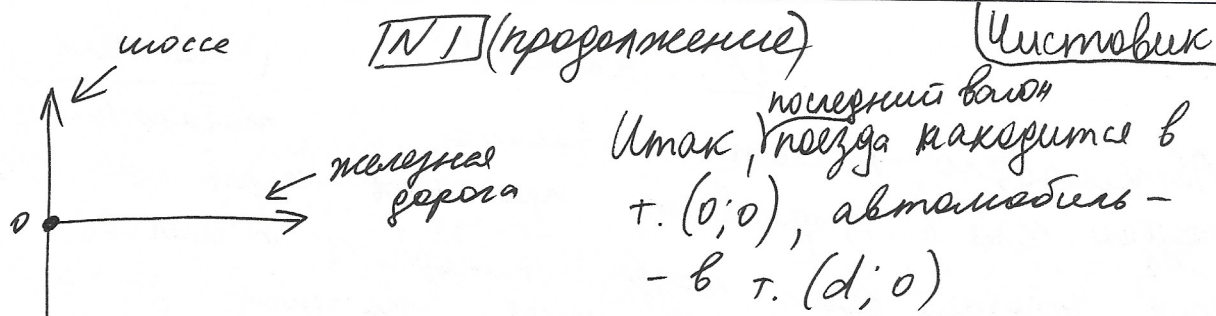 шоссе
N1 (продолжение)
Чистовик
железная
дорога
0
последний вагон
Итак, поезда находится в
т. (0; 0), автомобиль -
- в т. (d; 0)